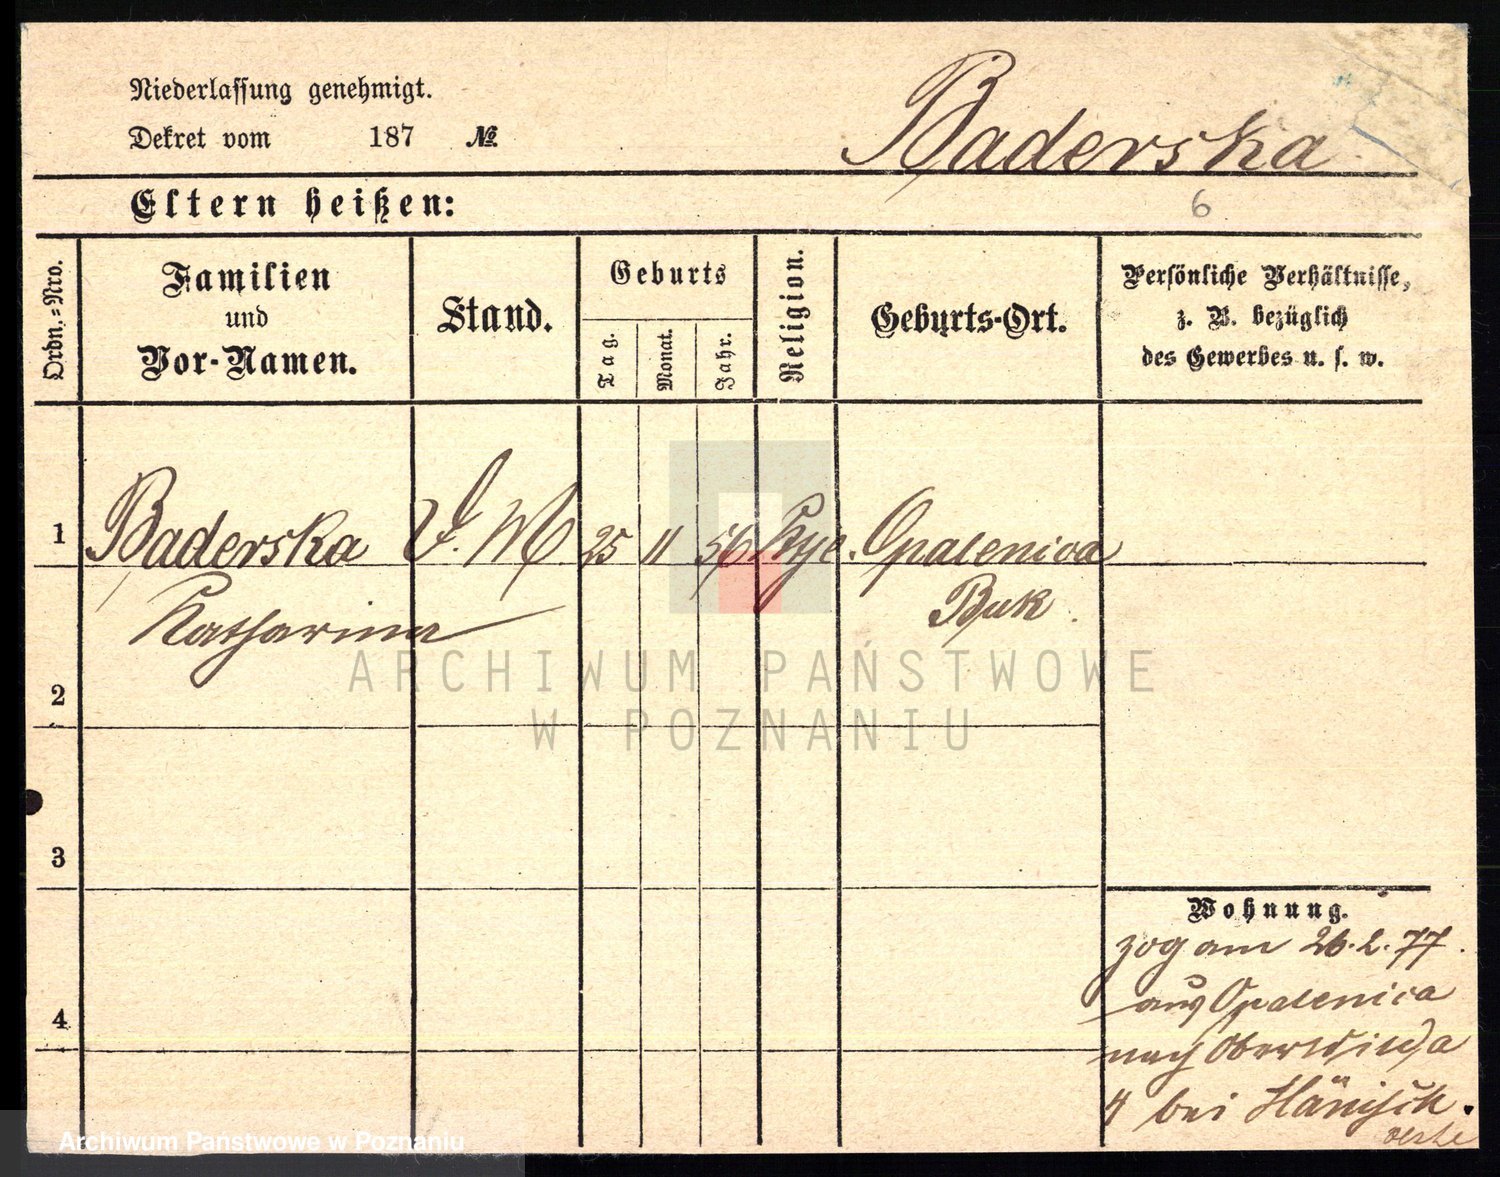 Niederlassung genehmigt.
Dekret vom 187 №
Baderska
Eltern heißen:
6
Ordn.-Nro.
Familien
und
Vor-Namen.
Stand.
Geburts
Tag.
Monat.
Jahr.
Religion.
Geburts-Ort.
Persönliche Verhältnisse,
z. B. bezüglich
des Gewerbes u. s. w.
1 Baderska D. M 25 11 56 Opalenica
Katharina Buk.
2
3
4
Wohnung.
zog am 26.2.77.
aus Opalenica
nach Oberwilda
4 bei Hänisch.
ARCHIWUM PAŃSTWOWE
W POZNANIU
Archiwum Państwowe w Poznaniu